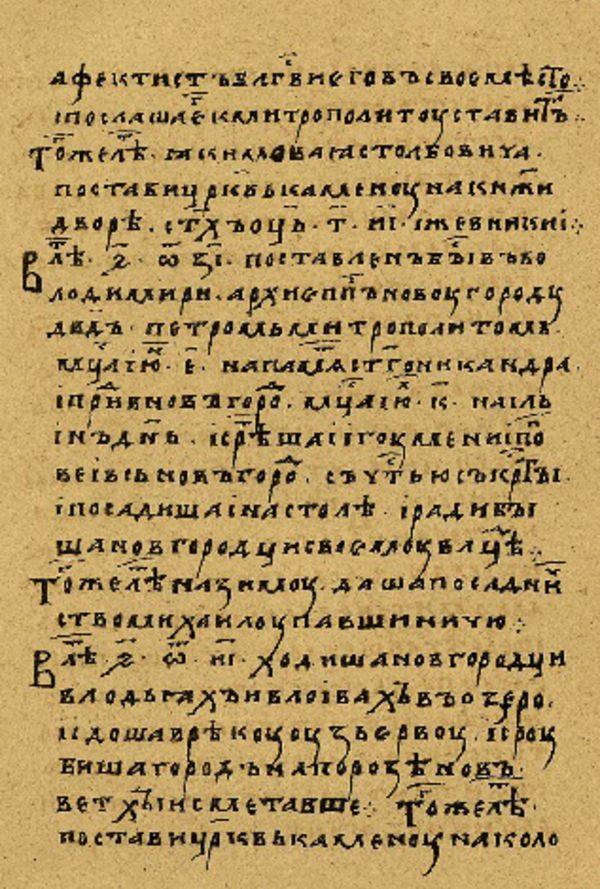 а фектистъ блгви его въ свое мѣсто.
і послаша е к митрополиту ставитъ
тоже лѣ. ꙗкимова ꙗ столбовича.
постави црквь камену на кнжи
дворѣ. стхъ оць. т. иі. іже в никиі
в лѣ. ҂ѕ. ѿ. ꙁі. поставленъ бы въ во
лодимири. архиеппъ новоугороду
двдъ. петромь митрополитомь
мца ію. е. на памят стго никандра.
і приде в новъгоро. мца ію. к. на іль
інъ днь. і срѣша і ігоумени і по
ве і всь новъгоро. съ чтью съ крты.
і посадиша і на столѣ. і ради бы
ша новгородци своему влцѣ.
тоже лѣ на зиму. даша посадни
ство михаилоу павшиничю.
в лѣ. ҂ѕ. ѿ. иі. ходиша новгородци
в лодьꙗхъ и в лоівахъ в оꙁеро.
и идоша в рѣкоу оуꙁьервоу. і сроу
биша городъ на пороꙁѣ новъ.
ветхыи сметавше. тоже лѣ.
постави црквь камену на коло